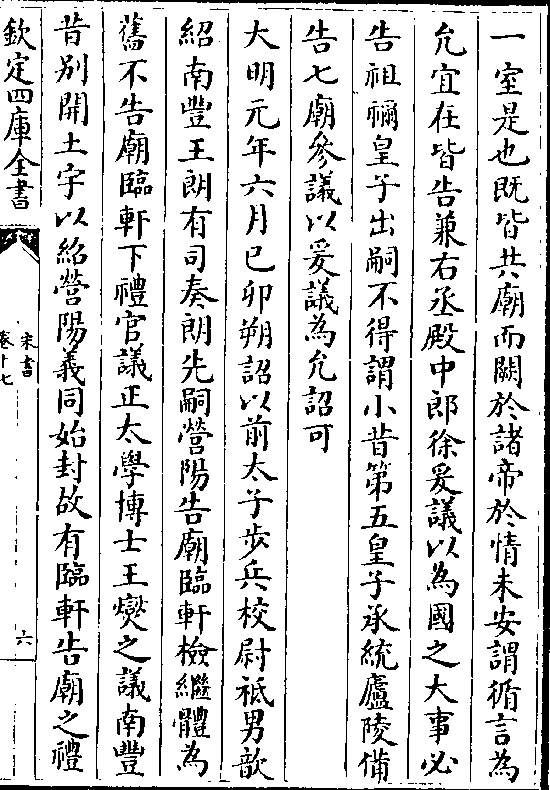 一室是也既皆共廟而闕於諸帝於情未安謂循言為
允宜在皆告兼右丞殿中郎徐爰議以為國之大事必
告祖禰皇子出嗣不得謂小昔第五皇子承統廬陵備
告七廟參議以爰議為允詔可
大明元年六月己卯朔詔以前太子步兵校尉祗男歆
紹南豐王朗有司奏朗先嗣營陽告廟臨軒檢繼體為
舊不告廟臨軒下禮官議正太學博士王燮之議南豐
昔別開土字以紹營陽義同始封故有臨軒告廟之禮
欽定四庫全書
宋書
卷十七
六